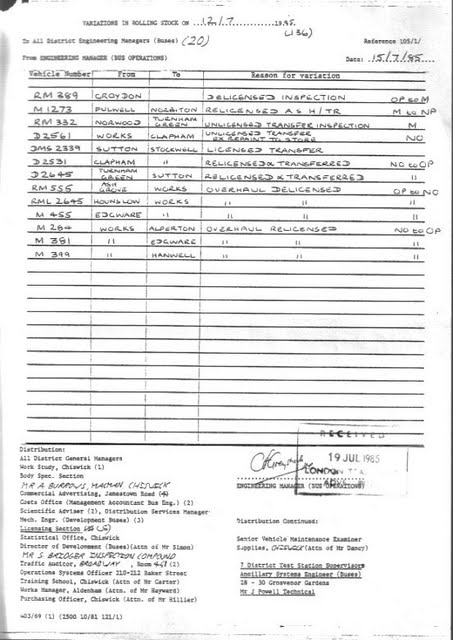 VARIATIONS IN ROLLING STOCK ON 12/7 1985
(136)
To All District Engineering Managers (Buses) (20) Reference 105/1/
From ENGINEERING MANAGER (BUS OPERATIONS) Date: 15/7/85
Vehicle Number From To Reason for variation
RM 389 CROYDON DELICENSED INSPECTION OP to M
M 1273 FULWELL NORBITON RELICENSED AS H/TR M to NP
RM 332 NORWOOD TURNHAM GREEN UNLICENSED TRANSFER INSPECTION M
D 2561 WORKS CLAPHAM UNLICENSED TRANSFER EX REPAINT TO STORE NO
DMS 2339 SUTTON STOCKWELL LICENSED TRANSFER
D 2531 CLAPHAM " RELICENSED & TRANSFERRED NO to OP
D 2645 TURNHAM GREEN SUTTON RELICENSED & TRANSFERRED "
RM 555 ASH GROVE WORKS OVERHAUL DELICENSED OP to NO
RML 2645 HOUNSLOW WORKS " " "
M 455 EDGWARE " " " "
M 284 WORKS ALPERTON OVERHAUL RELICENSED NO to OP
M 381 " EDGWARE " " "
M 399 " HANWELL " " "
RECEIVED
19 JUL 1985
LONDON
ENGINEERING MANAGER (BUS OPERATIONS)
Distribution:
All District General Managers
Work Study, Chiswick (1)
Body Spec. Section
MR A BURROWS, MACMAN CHISWICK
Commercial Advertising, Jamestown Road
Costs Office (Management Accountant Bus Eng.) (2)
Scientific Adviser (2), Distribution Services Manager
Mech. Engr. (Development Buses) (3)
Licensing Section
Statistical Office, Chiswick
Director of Development (Buses)(Attn of Mr Simon)
MR S. BADGER INSPECTION COMPOUND
Traffic Auditor, BROADWAY, Room
Operations Systems Officer 210-212 Baker Street
Training School, Chiswick (Attn of Mr Carter)
Works Manager, Aldenham (Attn. of Mr Hayward)
Purchasing Officer, Chiswick (Attn. of Mr Hillier)
Distribution Continued:
Senior Vehicle Maintenance Examiner
Supplies, CHISWICK (Attn of Mr Dancy)
7 District Test Station Supervisors
Ancillary Systems Engineer (Buses)
28 - 30 Grosvenor Gardens
Mr J Powell Technical
403/69 (1) (2500 10/81 121/1)